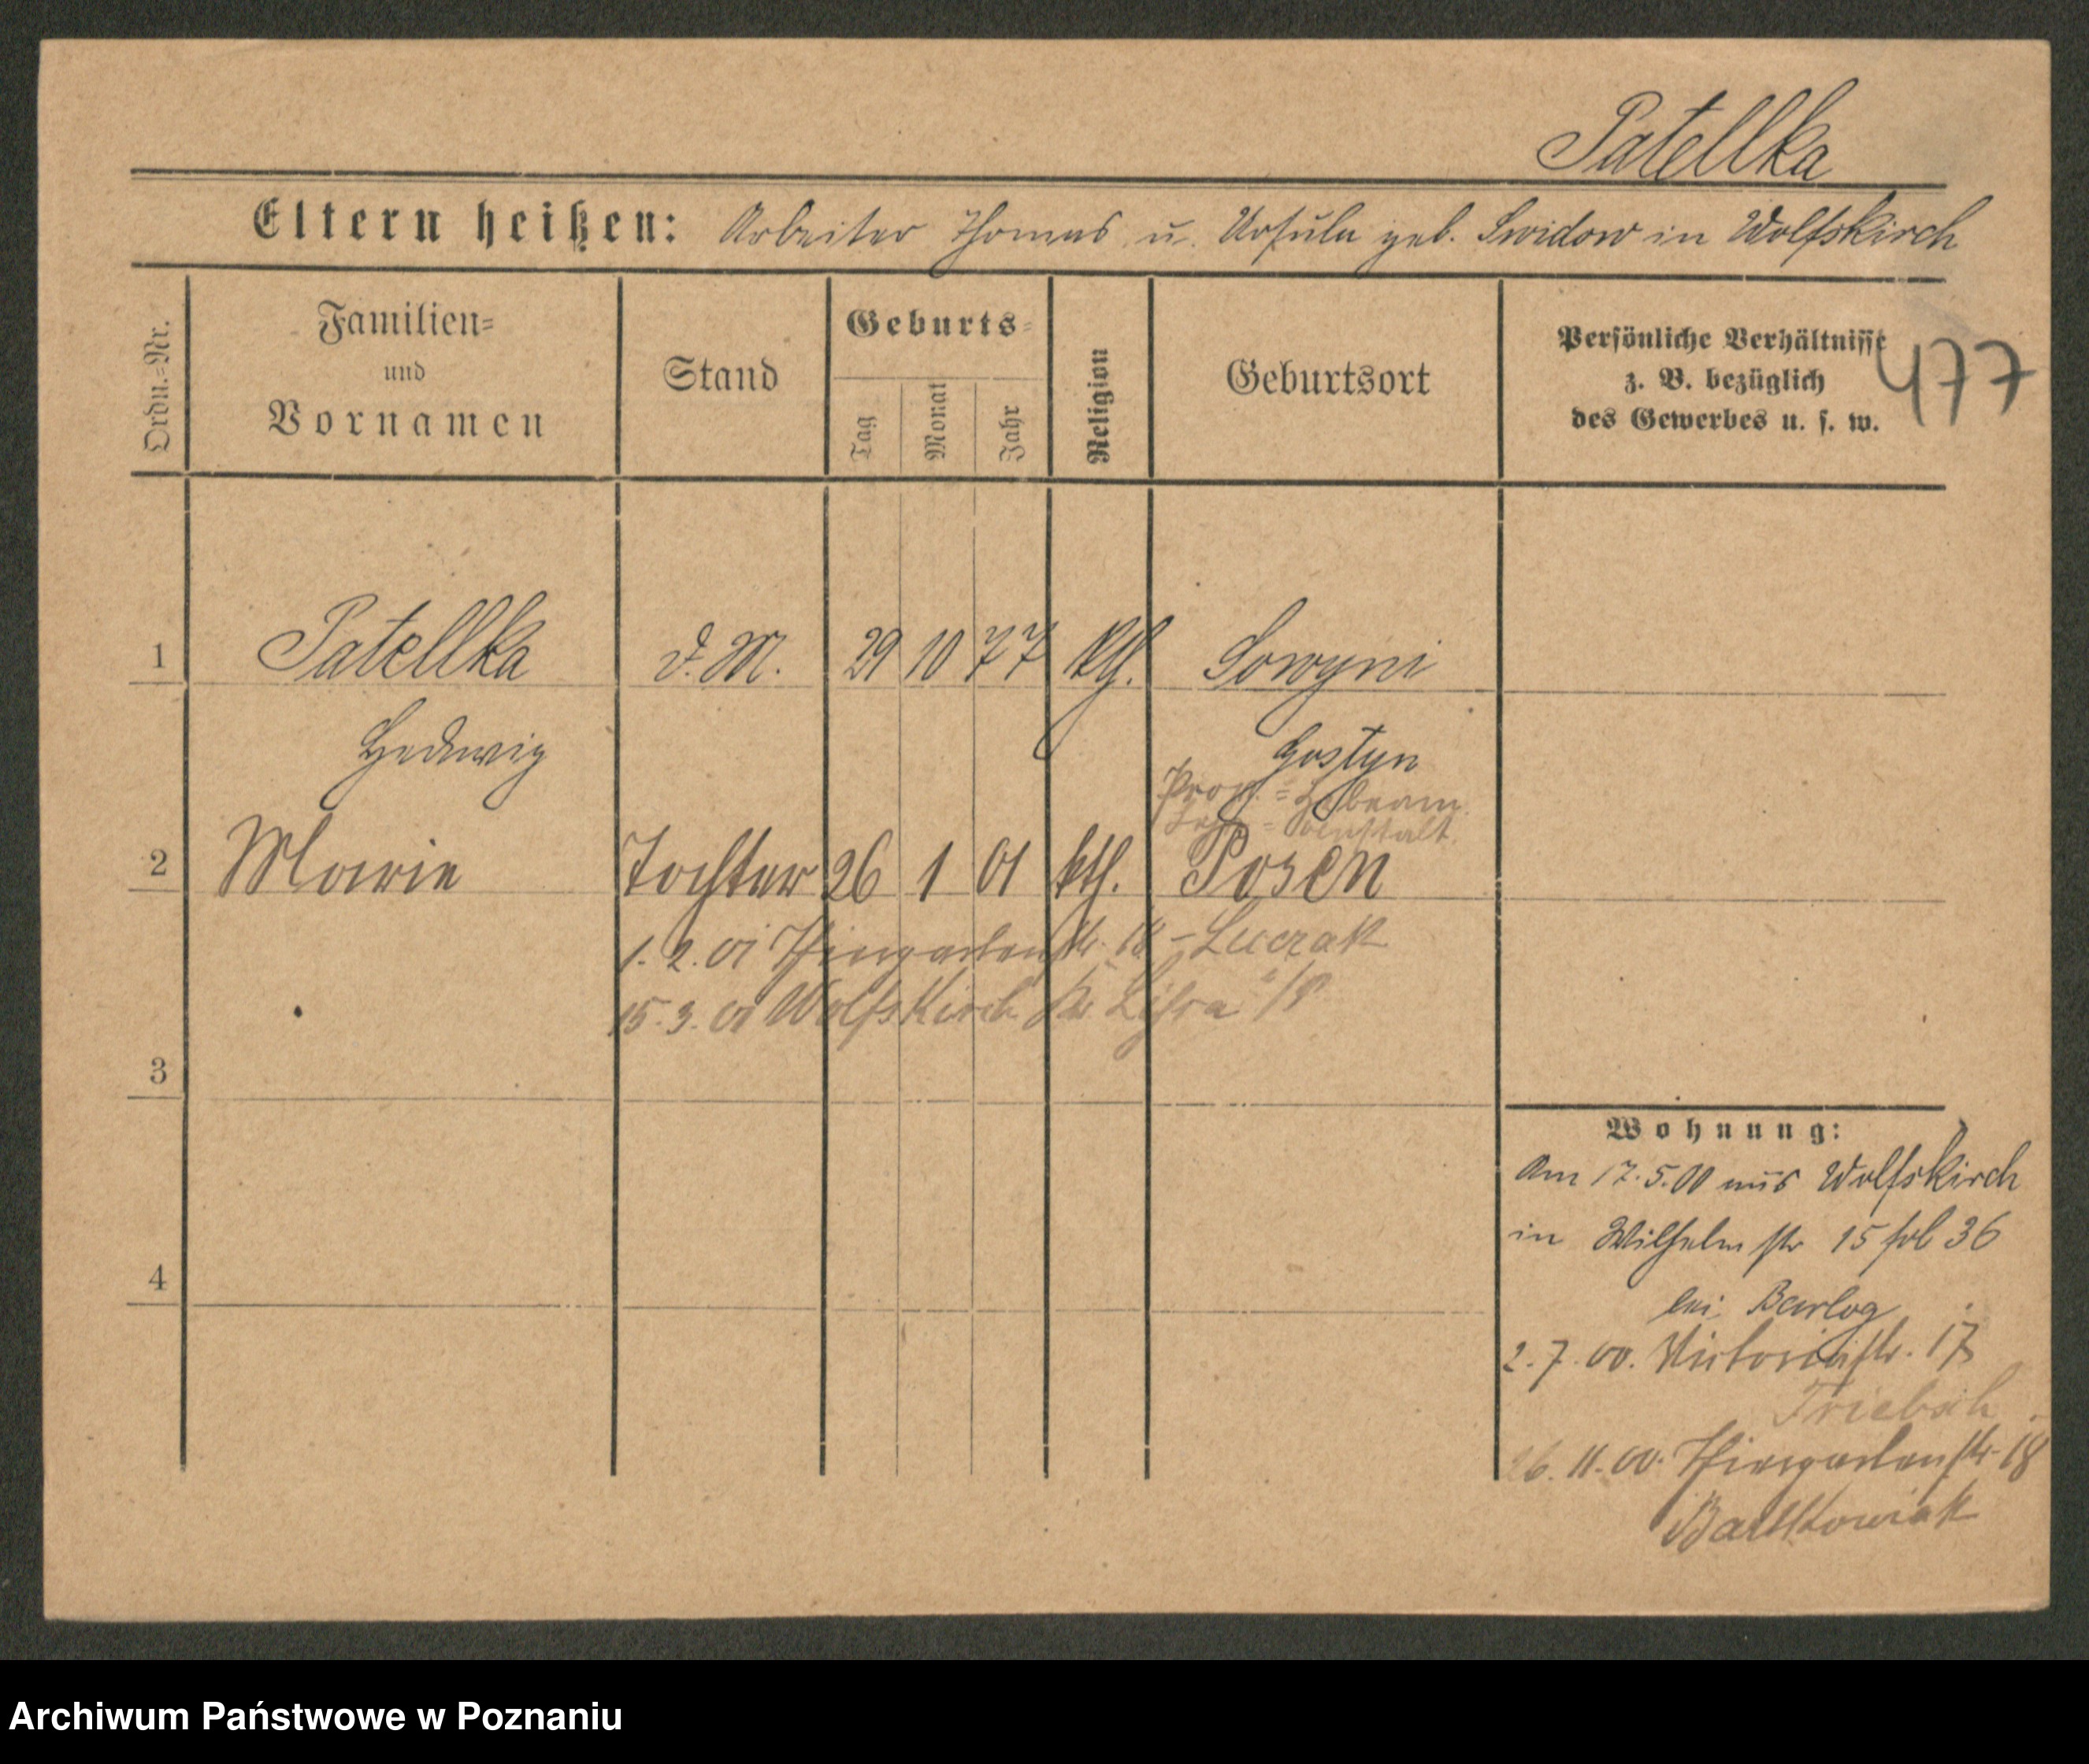 Patellka
Eltern heißen: Arbeiter Thomas u. Ursula geb. Swidow in Wolfskirch
Ordn.=Nr.
Familien=
und
Vornamen
Stand
Geburts=
Tag
Monat
Jahr
Religion
Geburtsort
Persönliche Verhältnisse
z. B. bezüglich
des Gewerbes u. s. w.
477
1 Patellka d. M. 29 10 77 kth. Sowyni
Hedwig Gostyn
Prov. = Hebeam
= Anstalt
2 Marie Tochter 26 1 01 kth. Posen
1. 2. 01 Thiergartenstr. 18 - Luczak
15. 3. 01 Wolfskirch Kr Lissa
3
4
Wohnung:
Am 17. 5. 00 aus Wolfskirch
in Wilhelmstr 15 36
bei Barlog
2. 7. 00. Victoriastr. 17
Triebsch
26. 11. 00. Thiergartenstr. 18
Bartkowiak
Archiwum Państwowe w Poznaniu